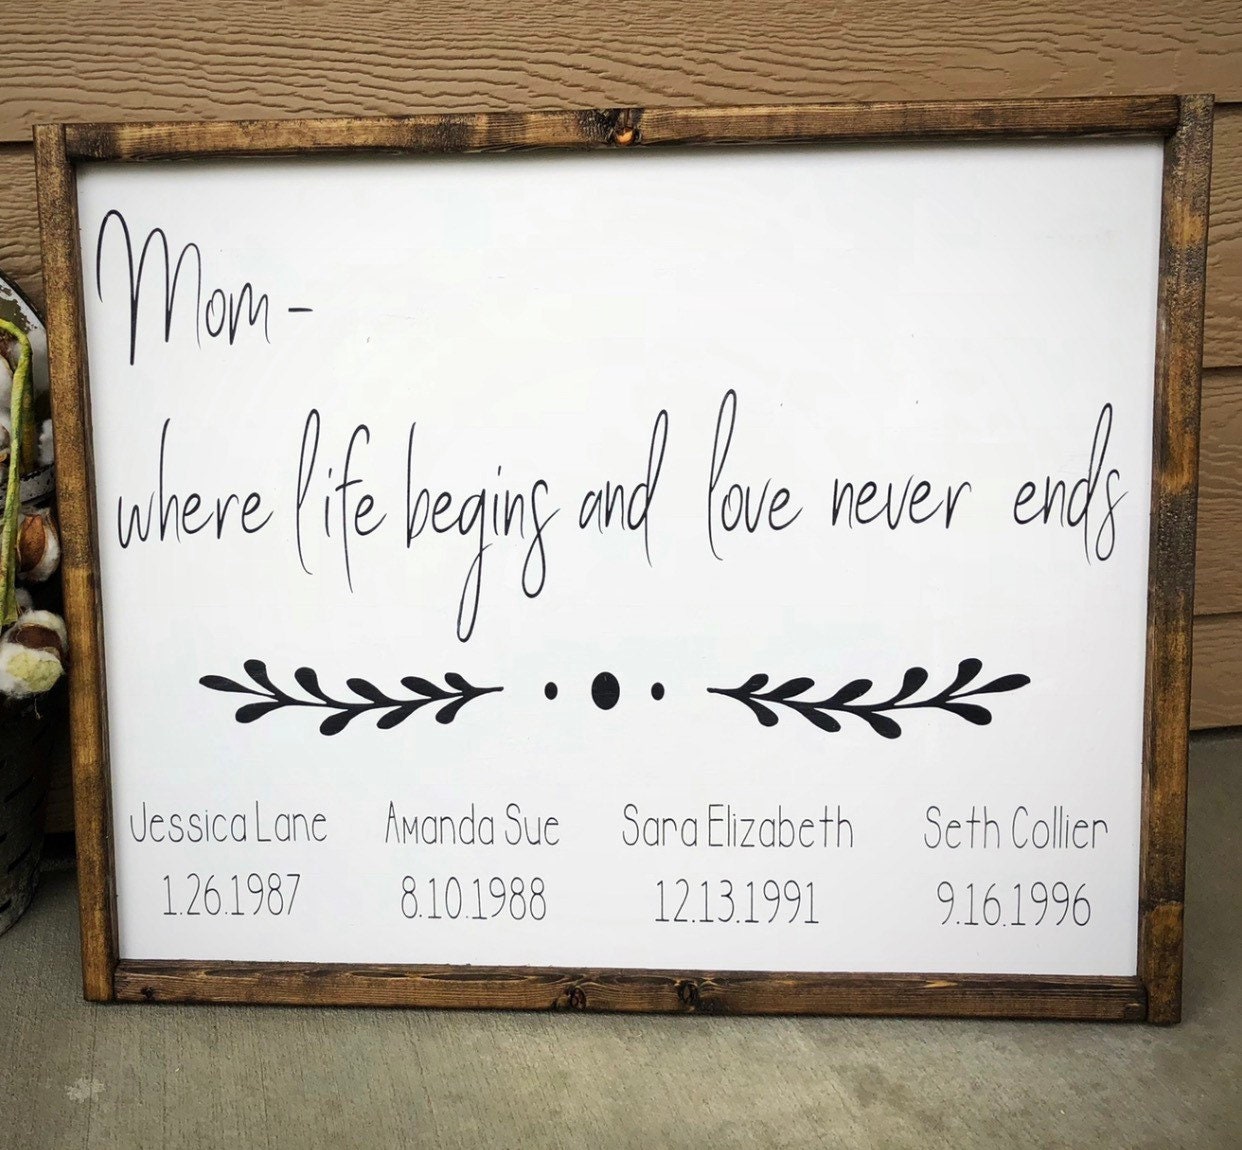 Mom -
where life begins and love never ends
Jessica Lane Amanda Sue Sara Elizabeth Seth Collier
1.26.1987 8.10.1988 12.13.1991 9.16.1996